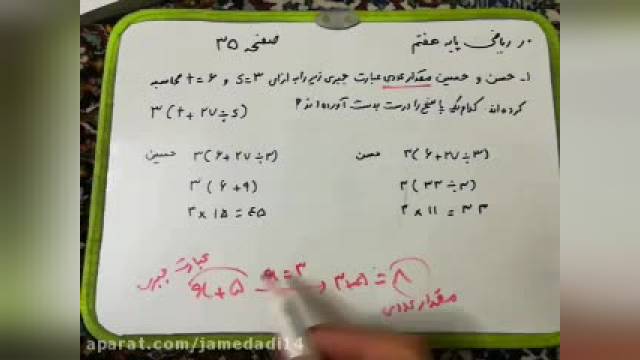 در ریاضی پایه هفتم صفحه ۳۵
۱- حسن و حسین مقدار عددی عبارت جبری زیر را به ازای s=۳ و t=۶ محاسبه
کرده‌اند کدام یک پاسخ را درست بدست آورده‌اند؟ ۳(t+۲۷÷s)
حسن ۳(۶+۲۷÷۳)
۳(۳۳÷۳)
۳×۱۱=۳۳
حسین ۳(۶+۲۷÷۳)
۳(۶+۹)
۳×۱۵=۴۵
عبارت جبری
x+۵ x=۳ ۳+۵=۸
مقدار عددی
aparat.com/jamedadi14